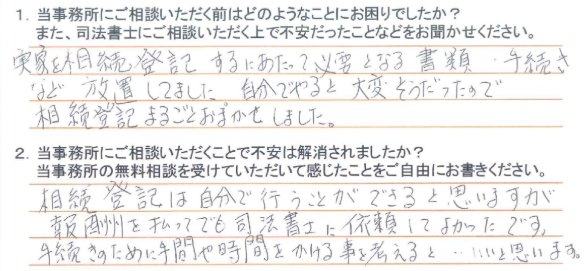 1. 当事務所にご相談いただく前はどのようなことにお困りでしたか？
また、司法書士にご相談いただく上で不安だったことなどをお聞かせください。
実家を相続登記するにあたって必要となる書類・手続き
など放置してました 自分でやると大変そうだったので
相続登記まるごとおまかせしました。
2. 当事務所にご相談いただくことで不安は解消されましたか？
当事務所の無料相談を受けていただいて感じたことをご自由にお書きください。
相続登記は自分で行うことができると思いますが
報酬を払ってでも司法書士に依頼してよかったです。
手続きのために手間や時間をかける事を考えると・・いいと思います。